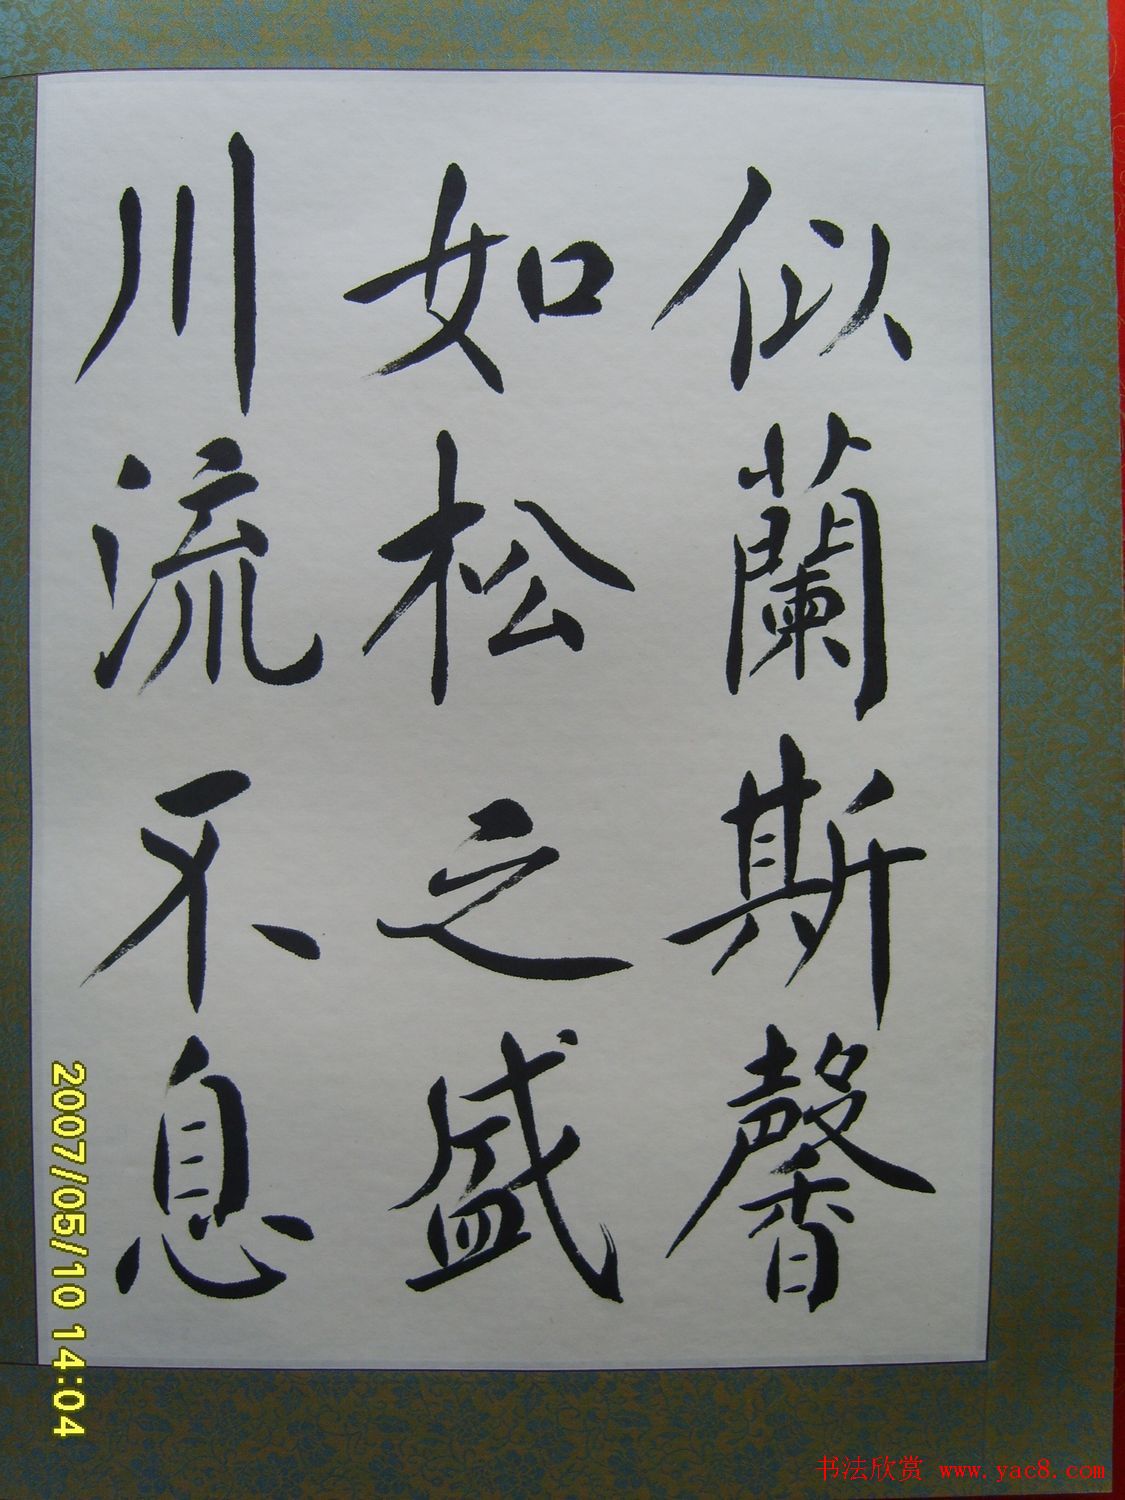 似蘭斯馨
如松之盛
川流不息
2007/05/10 14:04
书法欣赏 www.yac8.com